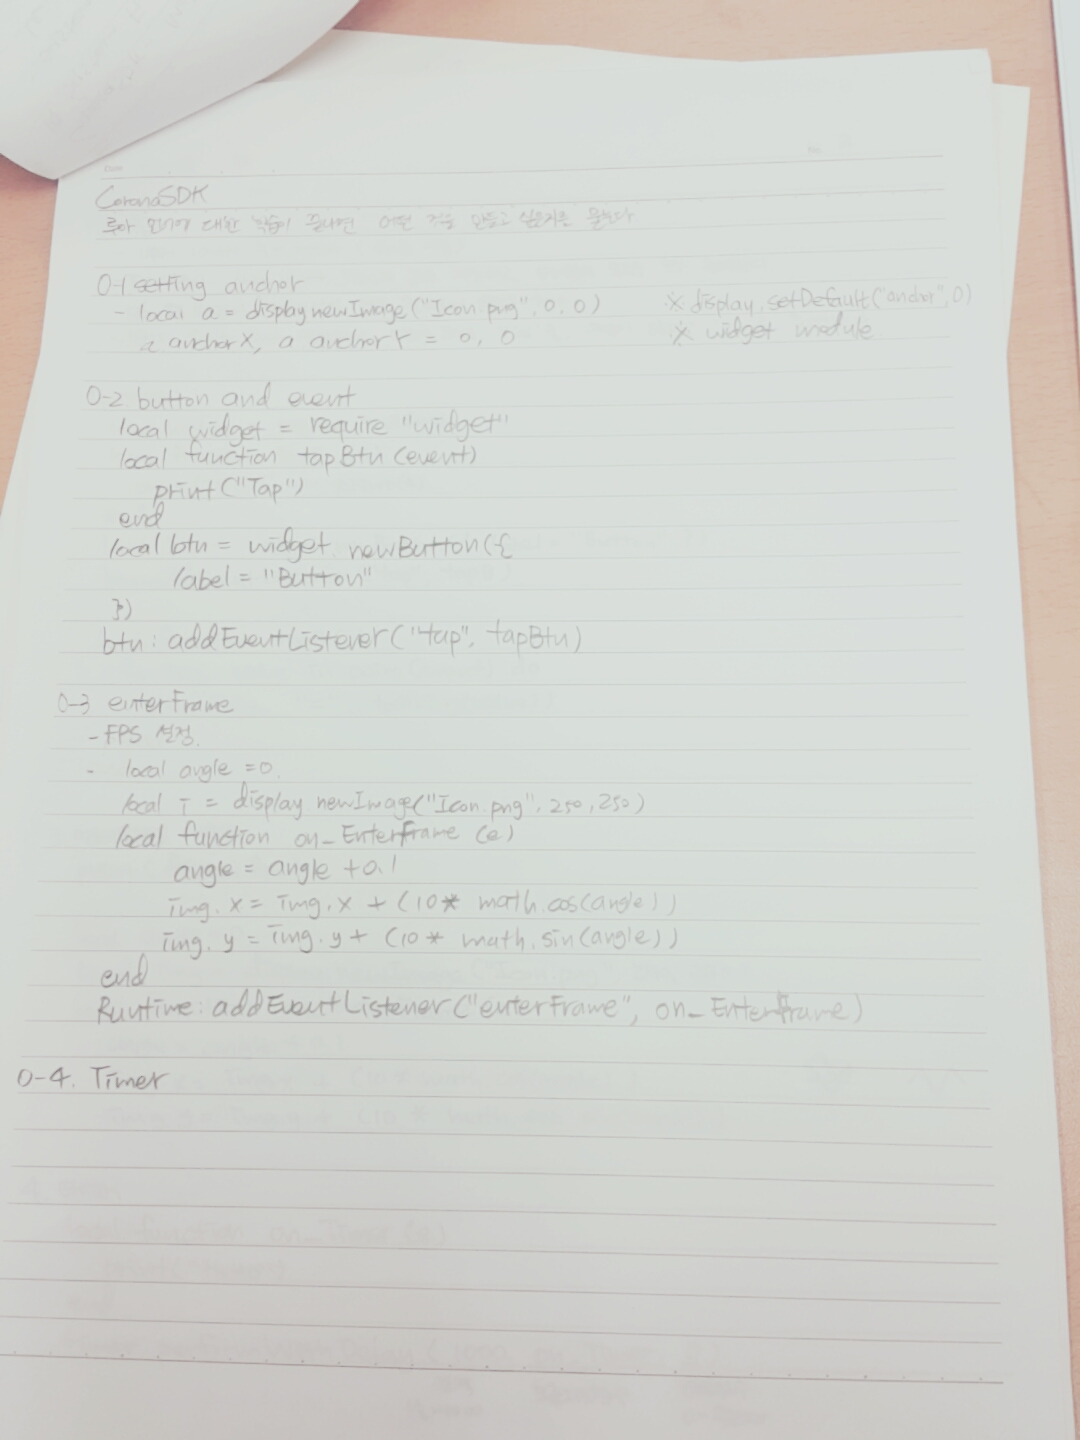 CoronaSDK
루아 언어에 대한 학습이 끝나면 어떤 것을 만들고 싶은지를 묻는다
0-1 setting anchor
- local a = display newImage ("Icon.png", 0, 0)
※ display.setDefault("anchor", 0)
a anchorX, a anchorY = 0, 0
※ widget module
0-2 button and event
local widget = require "widget"
local function tapBtn (event)
print ("Tap")
end
local btn = widget newButton({
label = "Button"
})
btn : addEventListener ("tap", tapBtn)
0-3 enterFrame
- FPS 설정.
- local angle = 0.
local i = display newImage("Icon.png", 250, 250)
local function on_EnterFrame (e)
angle = angle + 0.1
img. x = img. x + (10* math.cos(angle))
img. y = img. y + (10* math.sin(angle))
end
Runtime : addEventListener ("enterFrame", on_EnterFrame)
0-4. Timer